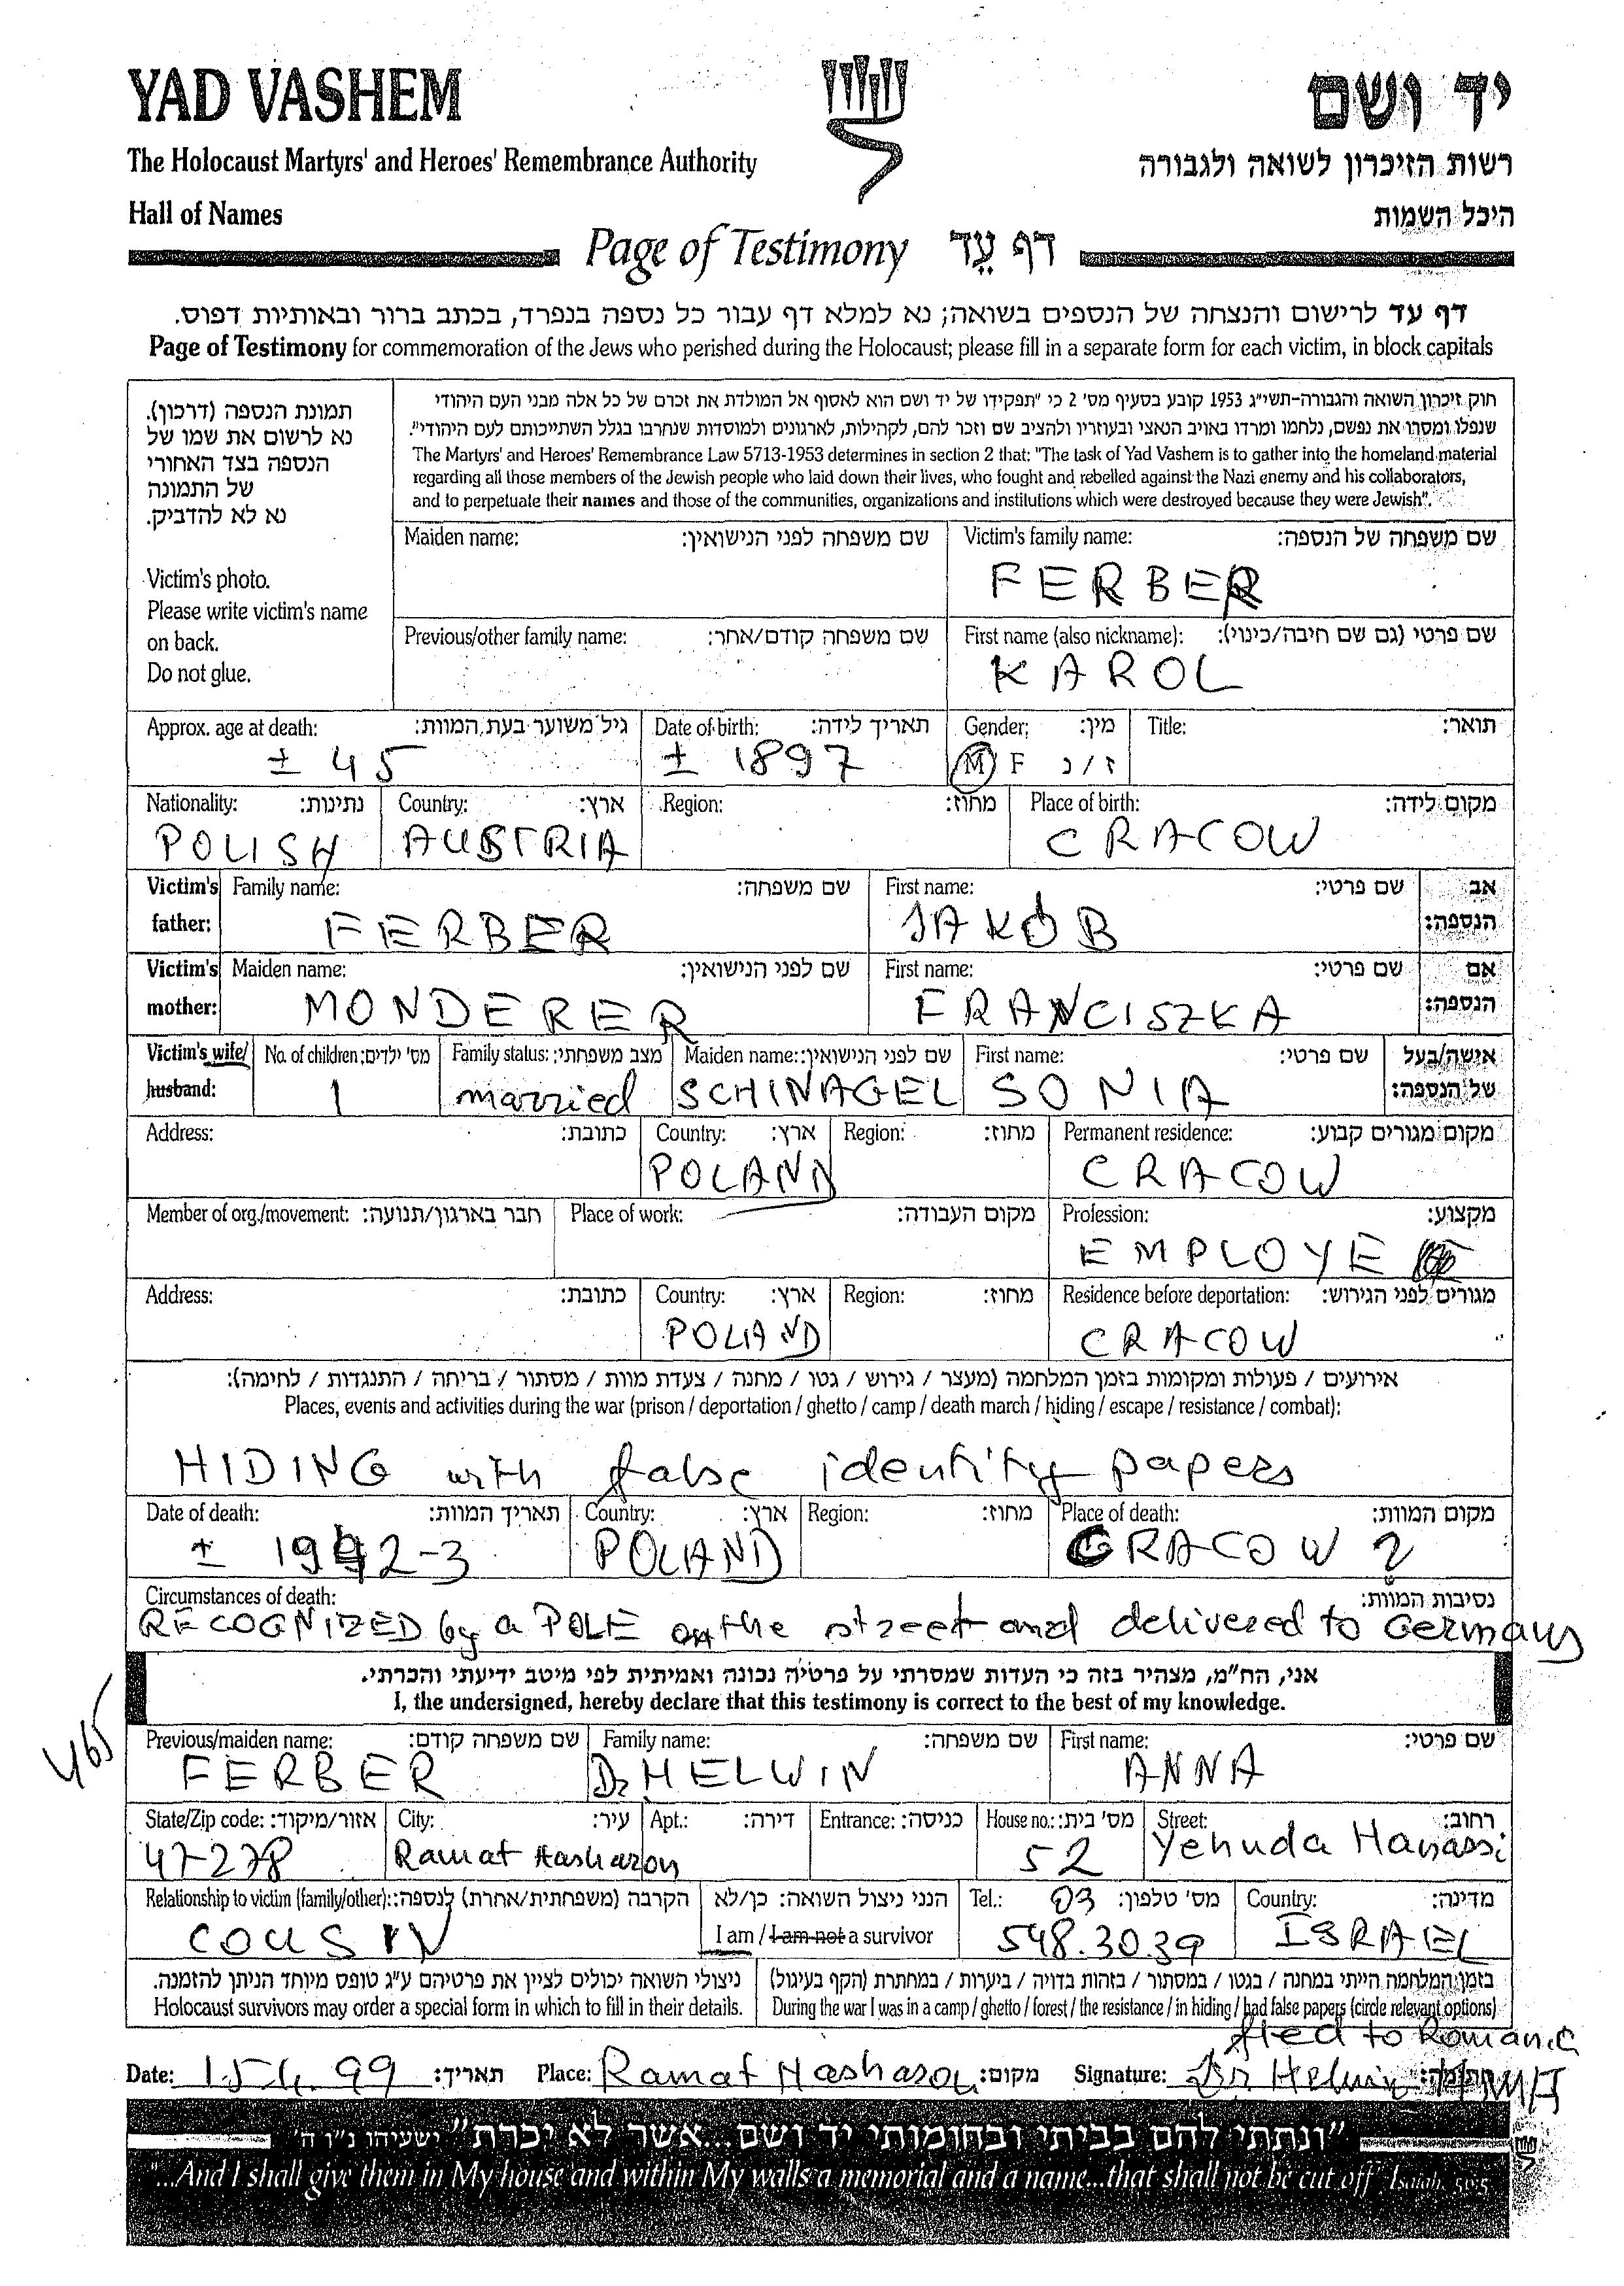 YAD VASHEM
יד ושם
The Holocaust Martyrs' and Heroes' Remembrance Authority
רשות הזיכרון לשואה ולגבורה
Hall of Names
היכל השמות
Page of Testimony דף עֵד
דף עד לרישום והנצחה של הנספים בשואה; נא למלא דף עבור כל נספה בנפרד, בכתב ברור ובאותיות דפוס.
Page of Testimony for commemoration of the Jews who perished during the Holocaust; please fill in a separate form for each victim, in block capitals
תמונת הנספה (דרכון).
נא לרשום את שמו של
הנספה בצד האחורי
של התמונה
נא לא להדביק.
Victim's photo.
Please write victim's name
on back.
Do not glue.
חוק זיכרון השואה והגבורה-תשי"ג 1953 קובע בסעיף מס' 2 כי "תפקידו של יד ושם הוא לאסוף אל המולדת את זכרם של כל אלה מבני העם היהודי
שנפלו ומסרו את נפשם, נלחמו ומרדו באויב הנאצי ובעוזריו ולהציב שם וזכר להם, לקהילות, לארגונים ולמוסדות שנחרבו בגלל השתייכותם לעם היהודי".
The Martyrs' and Heroes' Remembrance Law 5713-1953 determines in section 2 that: "The task of Yad Vashem is to gather into the homeland material
regarding all those members of the Jewish people who laid down their lives, who fought and rebelled against the Nazi enemy and his collaborators,
and to perpetuate their names and those of the communities, organizations and institutions which were destroyed because they were Jewish".
Maiden name: שם משפחה לפני הנישואין: Victim's family name: שם משפחה של הנספה:
FERBER
Previous/other family name: שם משפחה קודם/אחר: First name (also nickname): שם פרטי (גם שם חיבה/כינוי):
KAROL
Approx. age at death: גיל משוער בעת המוות: Date of birth: תאריך לידה: Gender: מין: Title: תואר:
± 45 ± 1897 M F ז/נ
Nationality: נתינות: Country: ארץ: Region: מחוז: Place of birth: מקום לידה:
POLISH AUSTRIA CRACOW
Victim's father: Family name: שם משפחה: First name: שם פרטי: אב הנספה:
FERBER JAKÓB
Victim's mother: Maiden name: שם לפני הנישואין: First name: שם פרטי: אם הנספה:
MONDERER FRANCISZKA
Victim's wife/ husband: No. of children: מס' ילדים: Family status: מצב משפחתי: Maiden name: שם לפני הנישואין: First name: שם פרטי: אישה/בעל של הנספה:
1 married SCHINAGEL SONIA
Address: כתובת: Country: ארץ: Region: מחוז: Permanent residence: מקום מגורים קבוע:
POLAND CRACOW
Member of org./movement: חבר בארגון/תנועה: Place of work: מקום העבודה: Profession: מקצוע:
EMPLOYE
Address: כתובת: Country: ארץ: Region: מחוז: Residence before deportation: מגורים לפני הגירוש:
POLAND CRACOW
אירועים / פעולות ומקומות בזמן המלחמה (מעצר / גירוש / גטו / מחנה / צעדת מוות / מסתור / בריחה / התנגדות / לחימה):
Places, events and activities during the war (prison / deportation / ghetto / camp / death march / hiding / escape / resistance / combat):
HIDING with false identity papers
Date of death: תאריך המוות: Country: ארץ: Region: מחוז: Place of death: מקום המוות:
± 1942-3 POLAND CRACOW ?
Circumstances of death: נסיבות המוות:
RECOGNIZED by a POLE on the street and delivered to Germans
אני, הח"מ, מצהיר בזה כי העדות שמסרתי על פרטיה נכונה ואמיתית לפי מיטב ידיעתי והכרתי.
I, the undersigned, hereby declare that this testimony is correct to the best of my knowledge.
465
Previous/maiden name: שם משפחה קודם: Family name: שם משפחה: First name: שם פרטי:
FERBER Dr HELWIN ANNA
State/Zip code: אזור/מיקוד: City: עיר: Apt.: דירה: Entrance: כניסה: House no.: מס' בית: Street: רחוב:
47-278 Ramat Hasharon 52 Yehuda Hanassi
Relationship to victim (family/other): הקרבה (משפחתית/אחרת) לנספה: הנני ניצול השואה: כן/לא Tel.: 03 מס' טלפון: Country: מדינה:
COUSIN I am / I am not a survivor 548.3039 ISRAEL
ניצולי השואה יכולים לציין את פרטיהם ע"ג טופס מיוחד הניתן להזמנה. בזמן המלחמה הייתי במחנה / בגטו / במסתור / בזהות בדויה / ביערות / במחתרת (הקף בעיגול)
Holocaust survivors may order a special form in which to fill in their details. During the war I was in a camp / ghetto / forest / the resistance / in hiding / had false papers (circle relevant options)
fled to Romania
Date: 15.4.99 תאריך: Place: Ramat Hasharon מקום: Signature: Dr Helwin ANNA חתימה:
"ונתתי להם בביתי ובחומותי יד ושם...אשר לא יכרת" ישעיהו נ"ו ה'
"...And I shall give them in My house and within My walls a memorial and a name...that shall not be cut off" Isaiah, 56:5